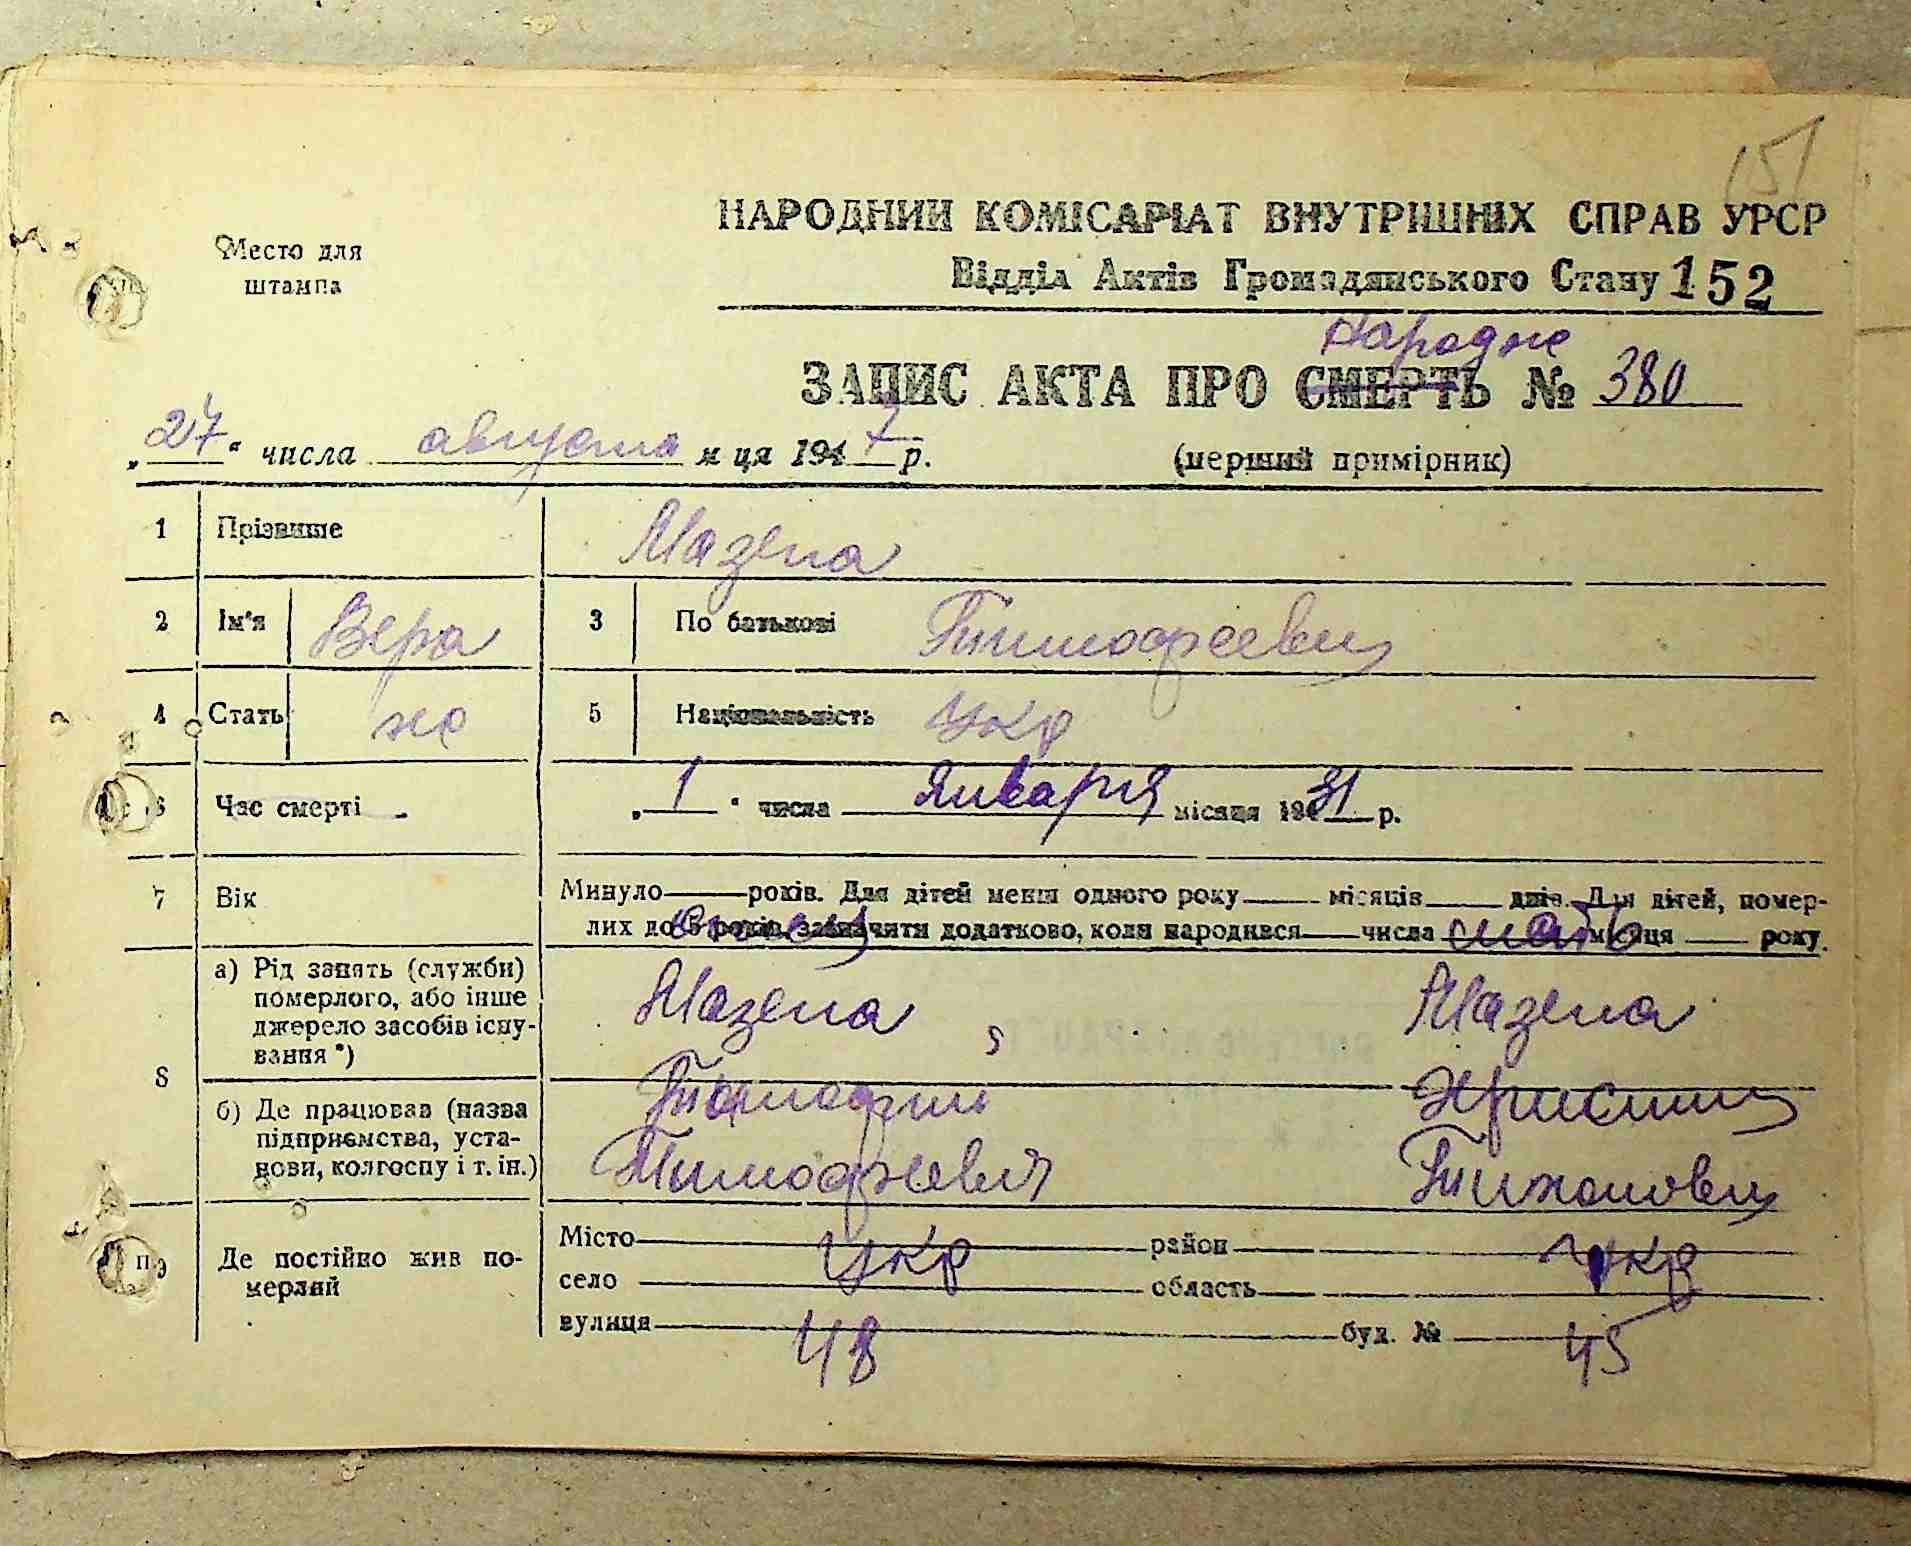 151
НАРОДНИЙ КОМІСАРІАТ ВНУТРІШНІХ СПРАВ УРСР
Место для
штампа
Відділ Актів Громадянського Стану 152
народж
ЗАПИС АКТА ПРО СМЕРТЬ № 380
„27“ числа августа м ця 1947 р.
(перший примірник)
1 Прізвище Мазепа
2 Ім'я Вера 3 По батькові Тимофеевна
4 Стать ж 5 Національність Укр
6 Час смерті „1“ числа Января місяця 1931 р.
7 Вік Минуло років. Для дітей менш одного року місяців днів. Для дітей, помер-
лих до 5 років, зазначити додатково, коли народився числа місяця року.
отец мать
8 а) Рід занять (служби)
померлого, або інше
джерело засобів існу-
вання *)
Мазепа Мазепа
б) Де працював (назва
підприємства, уста-
нови, колгоспу і т. ін.)
Тимофей
Тимофеевич Тихоновна
9 Де постійно жив по-
мерлий
Місто район
Укр Укр
село область
вулиця буд. №
48 45